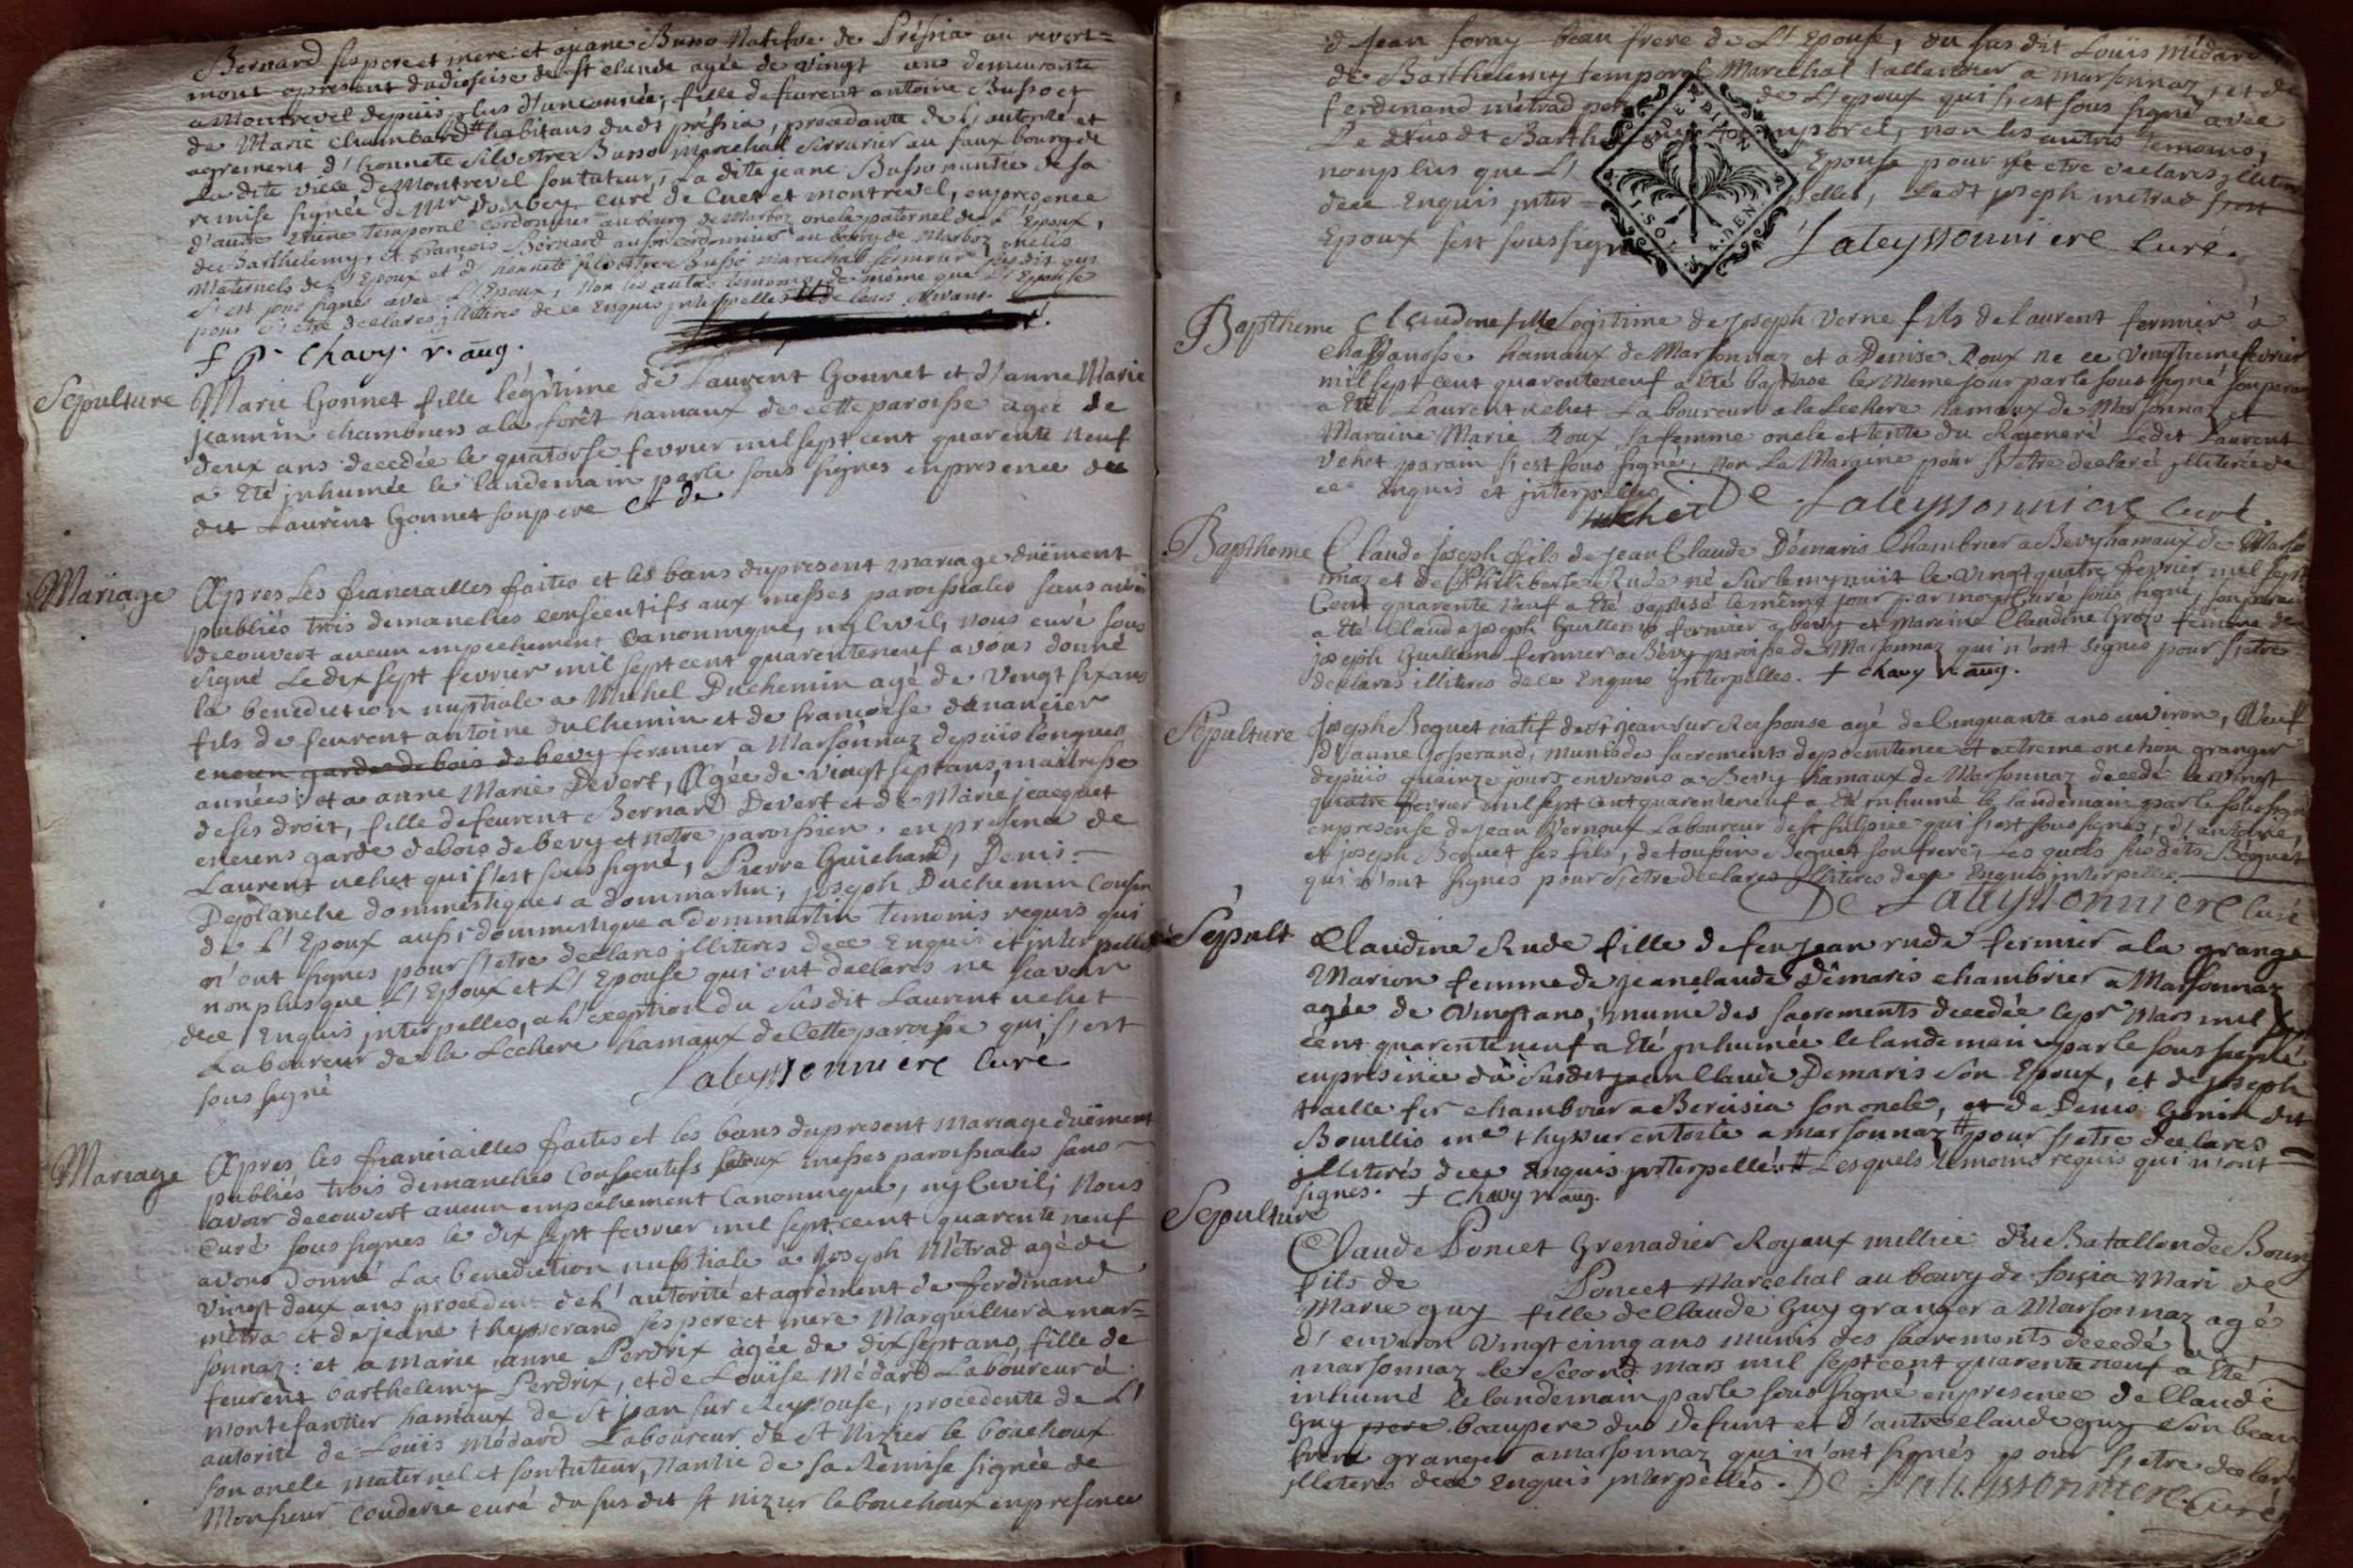 Bernard ses pere et mere: et a jeane Busso Native de Préssia au revert=
mont apresent du dioseise de st claude agée de vingt ans demeurante
a Montrevel depuis plus d'une année, fille de feurent antoine Busso et
de Marie Chambard # habitans dudt préssia, procedante de l'autorité et
agrement d'honnete Silvestre Busso marechal Serrurier au faux bourg de
La dite ville de Montrevel son tuteur, La dite jeane Busso munie de sa
remise signée de Mr curé de Cuet et montrevel, enpresence
d'autre temporal Cordonnier au bourg de Marboz oncle paternel de L'Epoux,
de Barthelemy, et françois Bernard aussi cordonnier au bourg de Marboz oncles
maternels de l'Epoux et d'honnete silvestre Busso marechal serrurier susdit qui
s'est sous signés avec L'Epoux, Non les autres temoins, de même que L'Epouse
pour s'etre declarés illitires de ce Enquis interpelles
f p. Chavy. v. aug.
Sépulture Marie Gonnet fille légitime de Laurent Gonnet et d'anne Marie
jeannin chambriers a la forêt hamaux de cette paroisse agée de
deux ans decedée le quatorse fevrier mil sept cent quarente neuf
a Eté inhumée le landemain par le sous signés enpresence du
dit Laurent Gonnet son pere et de
Mariage Apres Les fianciailles faites et les bans dupresent mariage duëment
publiés trois demanches consecutifs aux messes paroissiales sans avoir
decouvert aucun empechement Canonnique, ny Civil, nous curé sous
signé Le dix sept fevrier mil sept cent quarenteneuf avons donné
la benediction nuptiale a Michel Duchemin agé de vingt six ans
fils de feurent antoine du Chemin et de françoise
garde de bois de bevy fermier a Marsonnaz depuis longues
années: et a anne Marie Devert, Agée de vingt sept ans, maitresse
de ses droit, fille de feurent Bernard Devert et de Marie jeacquet
enciens garde de bois de bevy et notre paroissien. en presence de
Laurent uehet qui s'est sous signé, Pierre Guichard, Denis
Deplanche dommestiques a dommartin, joseph Duchemin Cousin
de L'Epoux aussi dommestique a dommartin temoins requis qui
n'ont signés pour s'etre declarés illitires de ce Enquis et interpelles
non plus que L'Epoux et L'Epouse qui ont declarés ne scavoir
de ce Enquis interpelles, a l'exception du susdit Laurent uehet
Laboureur de la Léchere hamaux de cette paroisse qui s'est
sous signé Lateyssonniere Curé
Mariage Apres les fianciailles faites et les bans dupresent Mariage duëment
publiés trois demanches Consecutifs aux messes paroissiales sans
avoir decouvert aucun empechement Canonnique, ny Civil; Nous
Curé sous signés le dix sept fevrier mil sept cent quarente neuf
avons donné La benediction nuptiale à Joseph Métrad agé de
vingt deux ans procedant de l'autorité et agrément de ferdinand
métra et de jeane thysserand ses pere et mere Marguillier a mar=
sonnaz: et a marie anne Perdrix àgée de dix sept ans, fille de
feurent barthelemy Perdrix, et de Louïse Médard Laboureur à
montefantier hamaux de st jean sur Reyssouse, procedente de L'
autorité de Louïs Médard Laboureur de st Nizier le bouchoux
son oncle maternel et son tuteur, Nantie de sa Remise signée de
Monsieur Couderie curé du sus dit st nizier le bouchoux enpresence
d Jean foray beau frere de L'Epouse, du sus dit Louïs Médard,
de Barthelemy temporal Marechal tallandier a marsonnaz, et de
ferdinand métrad pere de L'epoux qui s'est sous signé avec
Le susdt Barthelemy temporel, non les autres temoins,
nonplus que L' Epouse pour s'etre declarés illiteres
dece Enquis inter= pellés, Ledt joseph metrad
Epoux s'est soussigné Lateyssonniere Curé.
Baptheme Claudine fille Legitime de Joseph Verne fils de Laurent fermier à
Chassanosse hamaux de Marsonnaz et a Denise Roux ne ce vingtieme fevrier
mil sept cent quarenteneuf a Eté baptisée le Meme jour par le sous signé son parain
a Eté Laurent uehet Laboureur a la Lechere hamaux de Marsonnaz et
Maraine Marie Roux sa femme oncle et tente du Régeneré Ledt Laurent
vehet parain s'est sous signé, non La Maraine pour s'etre declaré illiterée de
ce Enquis et interpelles
uehet De Lateyssonniere Curé.
Baptheme Claude Joseph fils de Jean Claude Démaris Chambrier a Bevy hamaux de Marso
nnaz et de Philiberte Rude né sur le mynuit le vingt quatre fevrier mil sept
Cent quarente neuf a Eté baptisé le même jour par moy Curé sous signé, son parain
a Eté Claude Joseph Guillemo fermier a bevy et Maraine Claudine Gros femme de
joseph Guillemo fermier a Bévy paroisse de Marsonnaz qui n'ont signés pour s'etre
declarés illitires de ce Enquis interpelles. f Chavy v. aug.
Sépulture joseph Boquet natif de st jean sur Reyssouse agé de Cinquante ans environ, Veuf
d'anne josserand, munis des sacrements de poenitence et extreme onction granger
depuis quinze jours environs a Bevy hamaux de Marsonnaz decedé le vingt
quatre fevrier mil sept cent quarenteneuf a Eté inhumé le landemain par le sous signé
enpresense de Jean Vernoux Laboureur de st sulpice qui s'est sous signés, d'antoine,
et joseph Boquet ses fils, de toussin Boquet son frere, Les quels susdits Boquet
qui n'ont signés pour s'etre declarés illitires de ce Enquis interpelles.
De Lateyssonniere Curé
Sépult Claudine Rude fille de feu Jean rude fermier a la grange
Marion femme de jean claude Démaris chambrier a Marsonnaz
agée de vingt ans, munie des sacrements decedée le pr Mars mil sept
cent quarente neuf a Eté inhumée le landemain par le sous signé
enpresence du susdit jean Claude Demaris son Epoux, et de joseph
taille fer chambrier a Bereisia son oncle, et de Denis Genin dit
Bouillio me thyssier en toile a marsonnaz # pour s'etre declarés
illiterés dece Enquis interpellés. # Lesquels temoins requis qui n'ont
signes. f Chavy v. aug.
Sépulture
Claude Poncet Grenadier Royaux millice du Batallon de Bourg
fils de Poncet Marechal au bourg de foisia Mari de
Marie guy fille de Claude Guy granger a Marsonnaz agé
d'environ vingt cinq ans munis des sacrements decedé a
marsonnaz le Second mars mil sept cent quarente neuf a Eté
inhumé le landemain par le sous signé enpresence de Claude
Guy pere beaupere du Defunt et d'autre claude guy son beau
frere granger a marsonnaz qui n'ont signés pour s'etre declarés
illiteres dece Enquis interpellés. De Lateyssonniere Curé